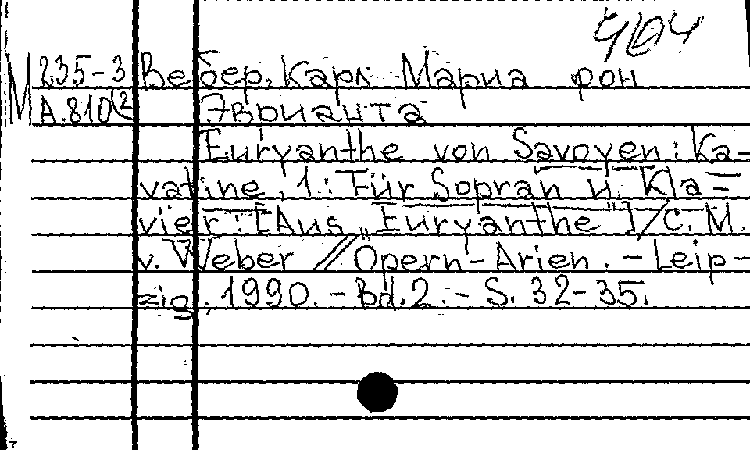 404
М 235-3 Вебер, Карл Мария фон
А.810(2 Эврианта
Euryanthe von Savoyen: Ka-
vatine, 1: Für Sopran u. Kla-
vier: [Aus „Euryanthe"]/C. M.
v. Weber // Opern-Arien. - Leip-
zig, 1990. - Bd. 2. - S. 32-35.